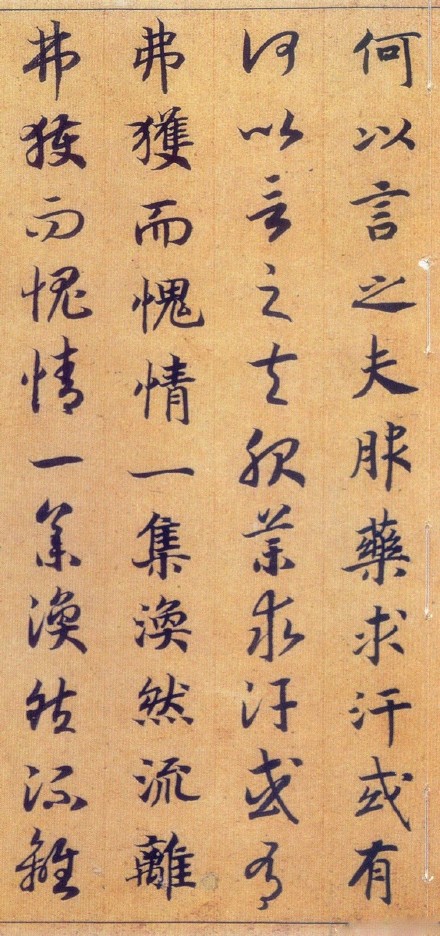 何以言之夫服藥求汗或有
何以言之夫服藥求汗或有
弗獲而愧情一集渙然流離
弗獲而愧情一集渙然流離